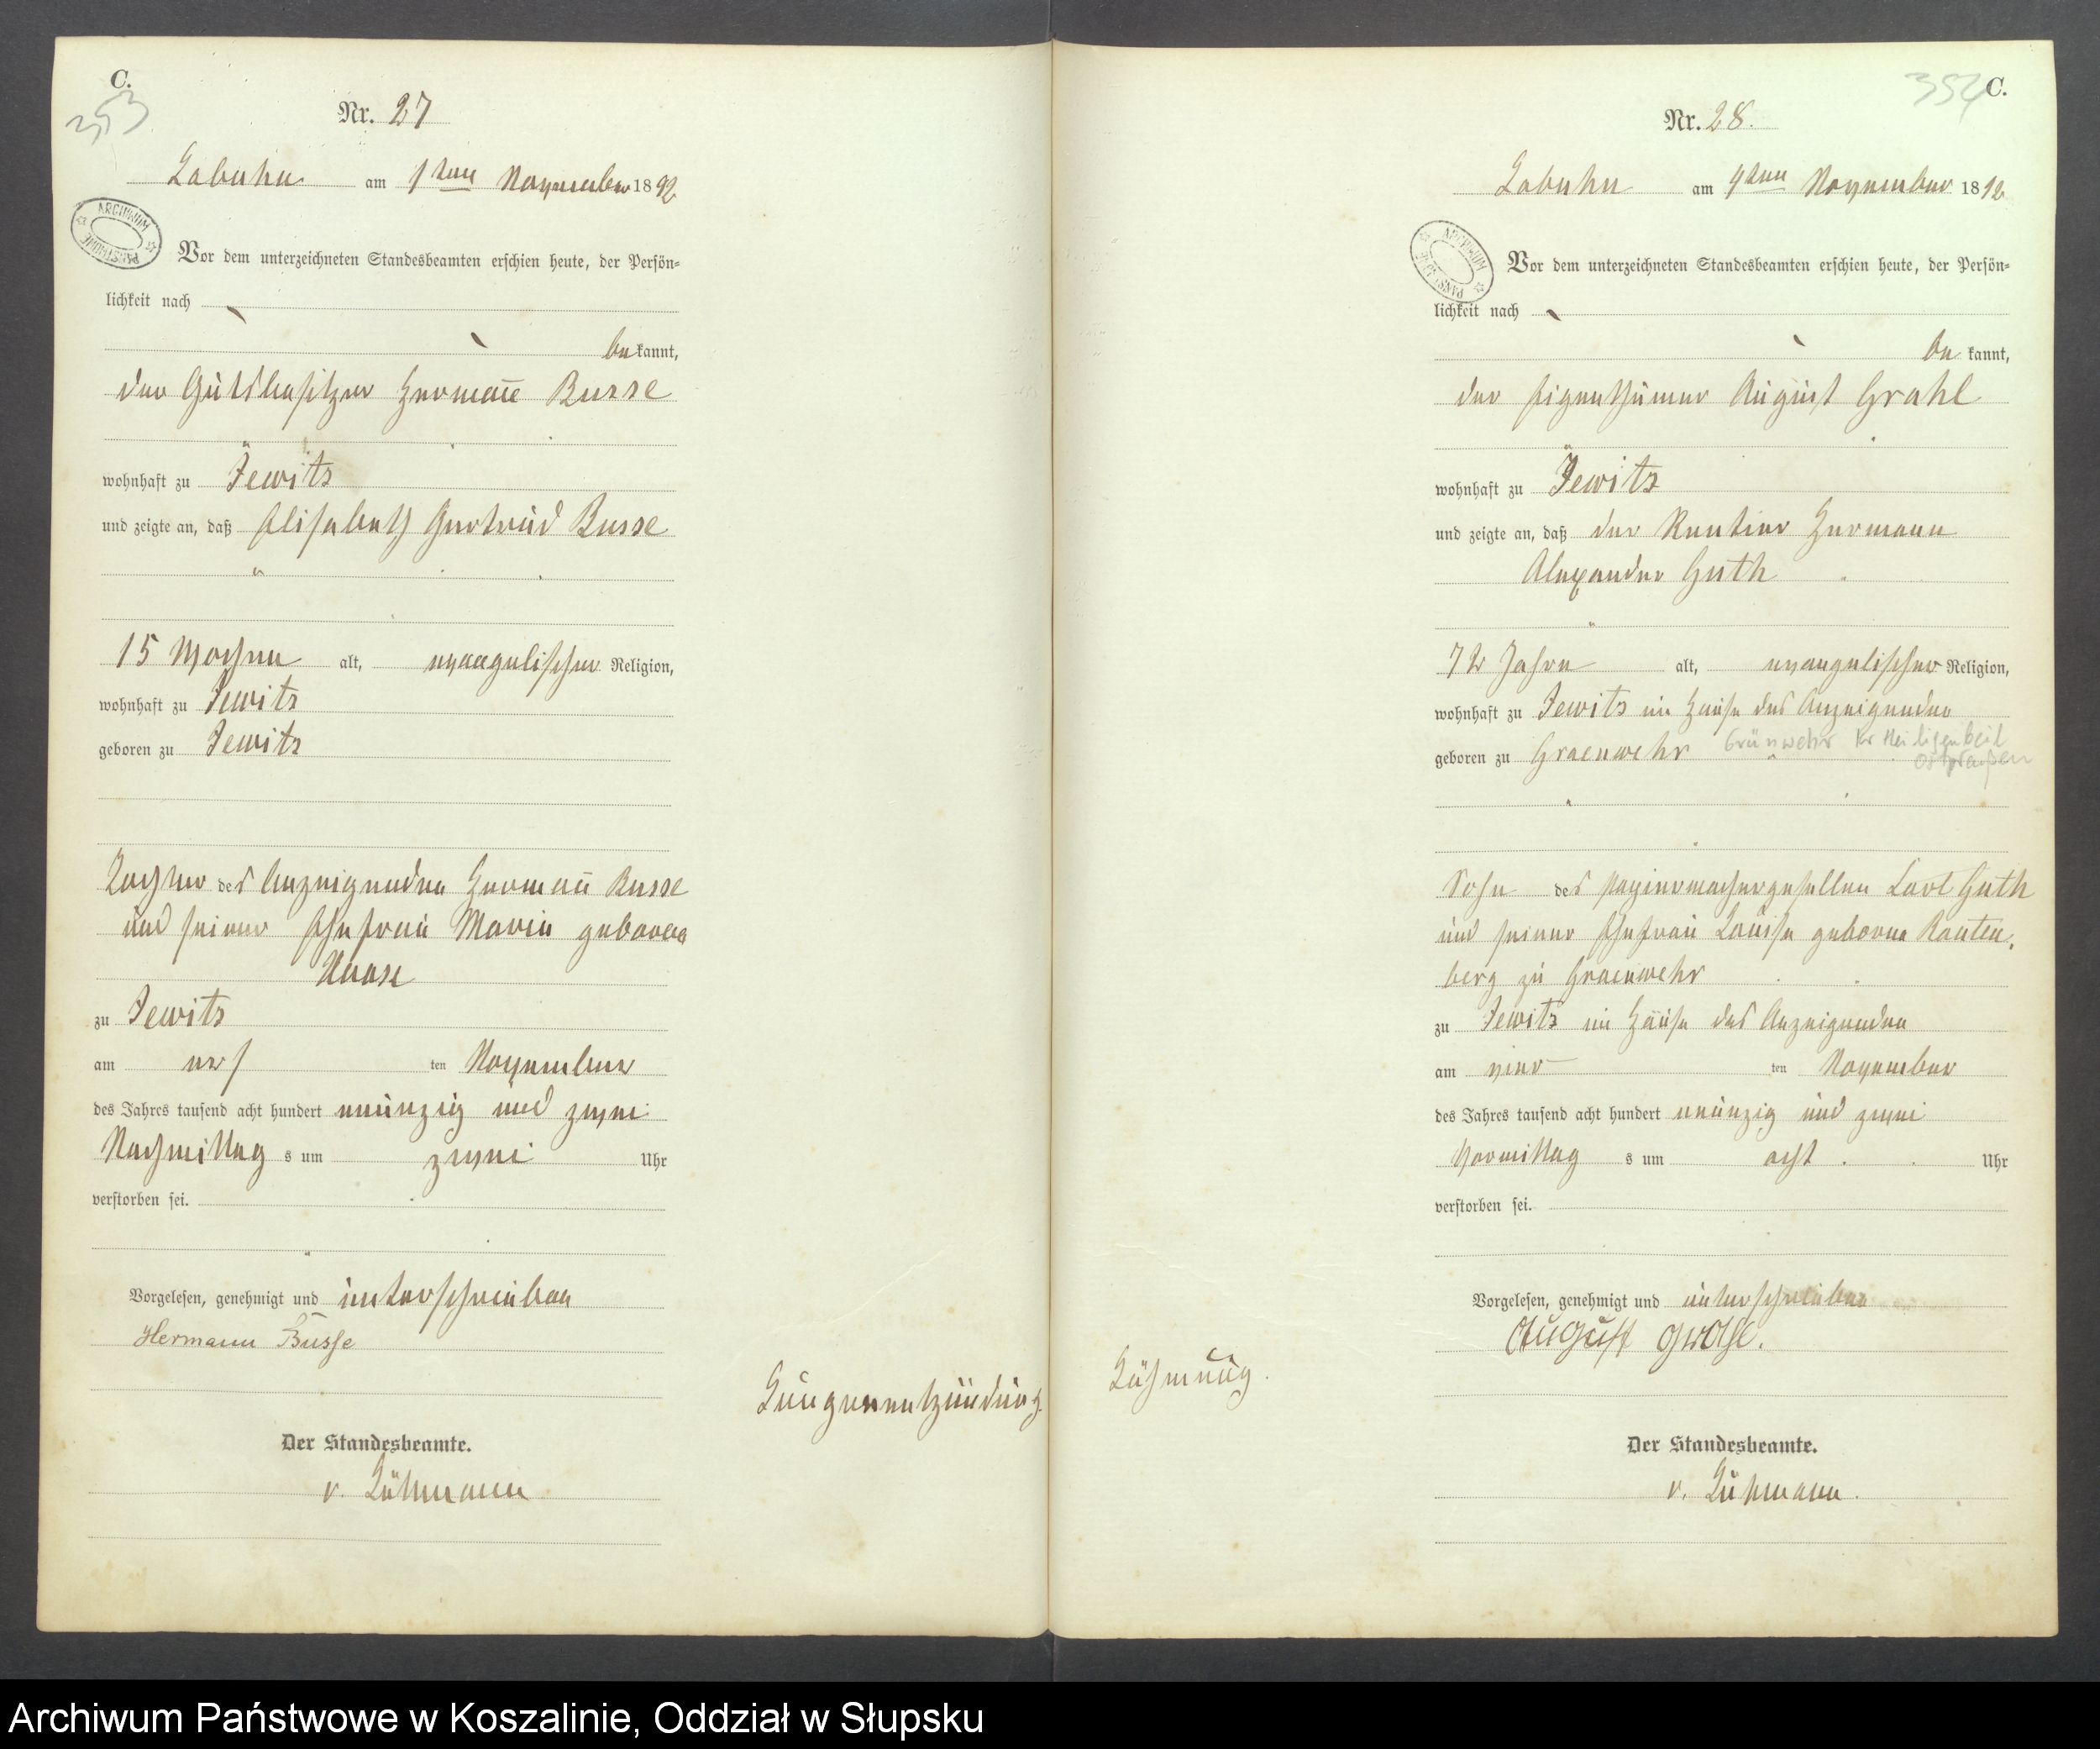 C.
353
Nr. 27
Labuhn am 1ten November 1892
ARCHIWUM PAŃSTWOWE
Vor dem unterzeichneten Standesbeamten erschien heute, der Persön-
lichkeit nach
bekannt,
der Gutsbesitzer Hermann Busse
wohnhaft zu Jewitz
und zeigte an, daß Elisabeth Gertrud Busse
15 Wochen alt, evangelischer Religion,
wohnhaft zu Jewitz
geboren zu Jewitz
Tochter des Anzeigenden Hermann Busse
und seiner Ehefrau Marie geborene
Haase
zu Jewitz
am ers ten November
des Jahres tausend acht hundert neunzig und zwei
Nachmittags um zwei Uhr
verstorben sei.
Vorgelesen, genehmigt und unterschrieben
Hermann Busse
Der Standesbeamte.
v. Lühmann
Lungenentzündung.
354
C.
Nr. 28.
Labuhn am 4ten November 1892
ARCHIWUM
Vor dem unterzeichneten Standesbeamten erschien heute, der Persön-
lichkeit nach
be kannt,
der Eigenthümer August Grahl
wohnhaft zu Jewitz
und zeigte an, daß der Rentier Hermann
Alexander Guth
72 Jahre alt, evangelischer Religion,
wohnhaft zu Jewitz im Hause des Anzeigenden
geboren zu Graenwehr Grünwehr Kr Heiligenbeil
Ostpreußen
Sohn des Papiermachergesellen Carl Guth
und seiner Ehefrau Louise geborne Rauten-
berg zu Graenwehr
zu Jewitz im Hause des Anzeigenden
am vier ten November
des Jahres tausend acht hundert neunzig und zwei
Vormittags um acht Uhr
verstorben sei.
Vorgelesen, genehmigt und unterschrieben
August Grahl.
Lähmung.
Der Standesbeamte.
v. Lühmann.
Archiwum Państwowe w Koszalinie, Oddział w Słupsku